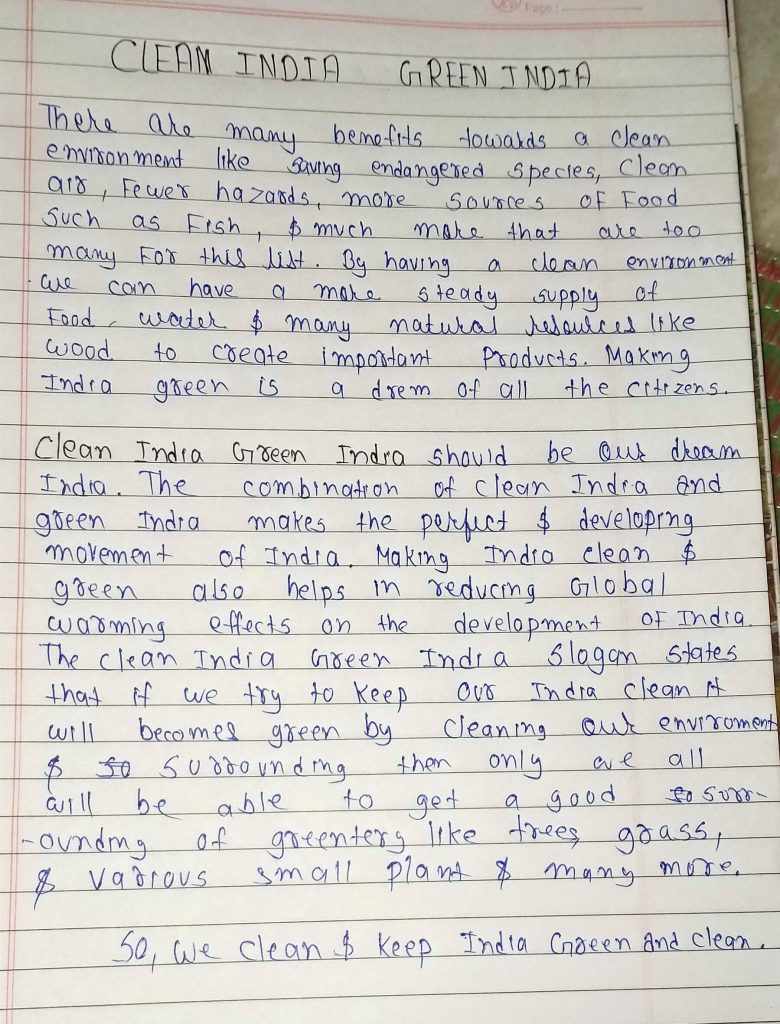 Page:
CLEAN INDIA GREEN INDIA
There are many benefits towards a clean
environment like saving endangered species, Clean
air, Fewer hazards, more sources of Food
such as Fish, & much more that are too
many For this list. By having a clean environment
we can have a more steady supply of
Food, water & many natural resources like
wood to create important Products. Making
India green is a drem of all the citizens.
Clean India Green India should be our dream
India. The combination of clean India and
green India makes the perfect & developing
movement of India. Making India clean &
green also helps in reducing Global
warming effects on the development of India.
The clean India Green India Slogan states
that if we try to keep our India clean it
will becomes green by cleaning our enviroment
& so surrounding then only we all
will be able to get a good so surr-
-ounding of greentery like trees, grass,
& various small plant & many more.
So, we clean & keep India Green And clean.